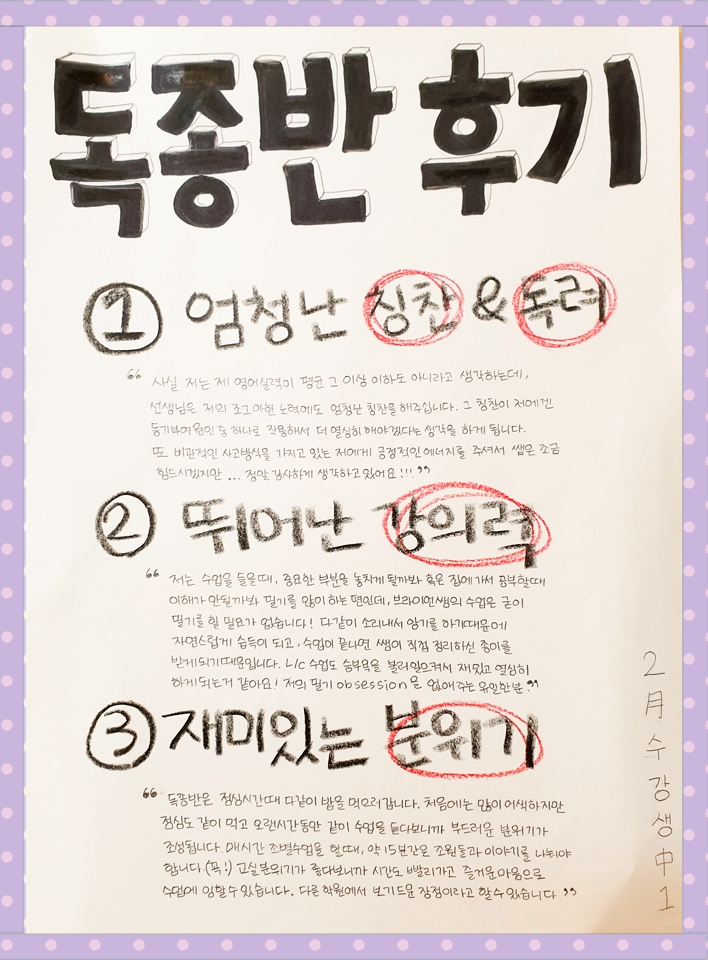 독종반 후기
① 엄청난 칭찬 & 독려
“ 사실 저는 제 영어실력이 평균 그 이상 이하도 아니라고 생각하는데,
선생님은 저의 조그마한 노력에도 엄청난 칭찬을 해주십니다. 그 칭찬이 저에겐
동기부여 원인 중 하나로 작용해서 더 열심히 해야겠다는 생각을 하게 됩니다.
또 비관적인 사고방식을 가지고 있는 저에게 긍정적인 에너지를 주셔서 쌤은 조금
힘드시겠지만 ... 정말 감사하게 생각하고 있어요!!! ”
② 뛰어난 강의력
“ 저는 수업을 들을때, 중요한 부분을 놓치게 될까봐 혹은 집에 가서 공부할때
이해가 안될까봐 필기를 많이 하는 편인데, 브라이언쌤의 수업은 굳이
필기를 할 필요가 없습니다! 다같이 소리내서 암기를 하기때문에
자연스럽게 습득이 되고, 수업이 끝나면 쌤이 직접 정리하신 종이를
받게 되기 때문입니다. L/C 수업도 승부욕을 불러일으켜서 재밌고 열심히
하게 되는거 같아요! 저의 필기 obsession을 없애주는 유일한 분 ”
③ 재미있는 분위기
“ 독종반은 점심시간때 다같이 밥을 먹으러갑니다. 처음에는 많이 어색하지만
점심도 같이 먹고 오랜시간동안 같이 수업을 듣다보니까 부드러운 분위기가
조성됩니다. 매시간 조별수업을 할때, 약 15분간은 조원들과 이야기를 나눠야
합니다.(꼭!) 교실분위기가 좋다보니까 시간도 빨리가고 즐거운 마음으로
수업에 임할수 있습니다. 다른 학원에서 보기드문 장점이라고 할 수 있습니다. ”
2月 수강생 中 1